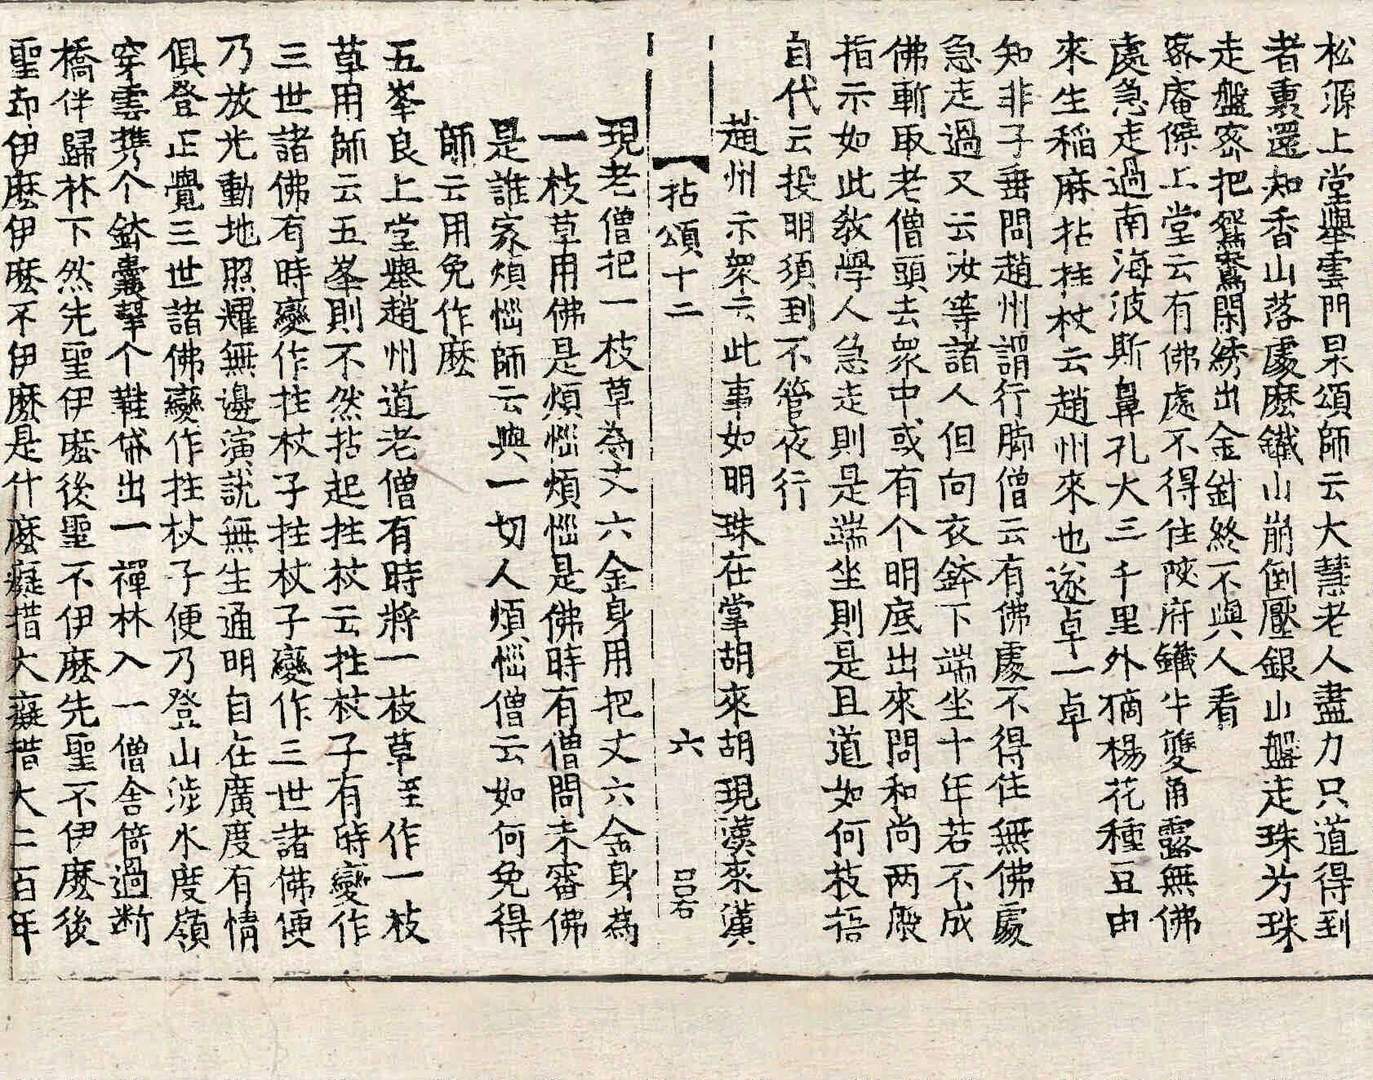 松源上堂舉雲門杲頌師云大慧老人盡力只道得到
者裏還知香山落處麽鐵山崩倒壓銀山盤走珠芳珠
走盤密把鴛鴦閑綉出金針終不與人看
密庵傑上堂云有佛處不得住陝府鐵牛雙角露無佛
處急走過南海波斯鼻孔大三千里外摘楊花種豆由
來生稻麻拈拄杖云趙州來也遂卓一卓
知非子垂問趙州謂行脚僧云有佛處不得住無佛處
急走過又云汝等諸人但向衣鉢下端坐十年若不成
佛斬取老僧頭去衆中或有个明底出來問和尚两般
指示如此教學人急走則是端坐則是且道如何枝梧
自代云投明須到不管夜行
趙州示衆云此事如明珠在掌胡來胡現漢來漢
拈頌十二 六
現老僧把一枝草為丈六金身用把丈六金身為
一枝草用佛是煩惱煩惱是佛時有僧問未審佛
是誰家煩惱師云與一切人煩惱僧云如何免得
師云用免作麽
五峯良上堂舉趙州道老僧有時將一枝草至作一枝
草用師云五峯則不然拈起拄杖云拄杖子有時變作
三世諸佛有時變作拄杖子拄杖子變作三世諸佛便
乃放光動地照耀無邊演説無生通明自在廣度有情
俱登正覺三世諸佛變作拄杖子便乃登山涉水度嶺
穿雲携个鉢囊拏个鞋帒出一禪林入一僧舍倚過断
橋伴歸林下然先聖伊麽後聖不伊麽先聖不伊麽後
聖却伊麽伊麽不伊麽是什麽癡措大癡措大二百年